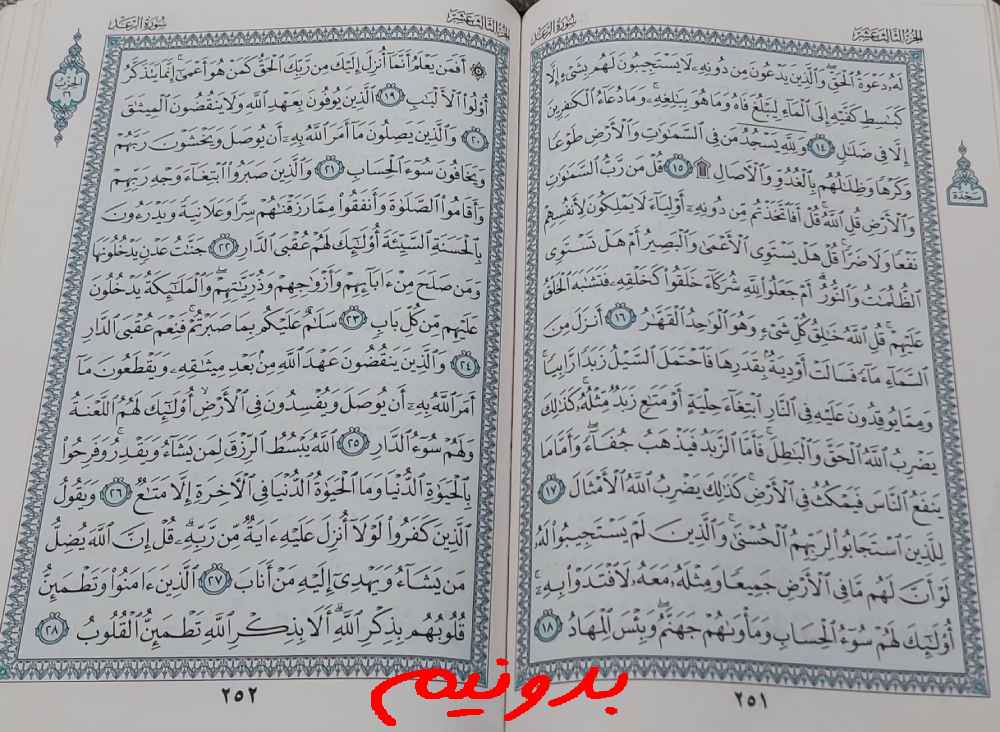 الجزء الثالث عشر
سورة الرعد
لَهُۥ دَعْوَةُ ٱلْحَقِّ وَٱلَّذِينَ يَدْعُونَ مِن دُونِهِۦ لَا يَسْتَجِيبُونَ لَهُم بِشَىْءٍ إِلَّا
كَبَٰسِطِ كَفَّيْهِ إِلَى ٱلْمَآءِ لِيَبْلُغَ فَاهُ وَمَا هُوَ بِبَٰلِغِهِۦ وَمَا دُعَآءُ ٱلْكَٰفِرِينَ
إِلَّا فِى ضَلَٰلٍ ١٤ وَلِلَّهِ يَسْجُدُ مَن فِى ٱلسَّمَٰوَٰتِ وَٱلْأَرْضِ طَوْعًا
وَكَرْهًا وَظِلَٰلُهُم بِٱلْغُدُوِّ وَٱلْءَاصَالِ ۩ ١٥ قُلْ مَن رَّبُّ ٱلسَّمَٰوَٰتِ
وَٱلْأَرْضِ قُلِ ٱللَّهُ قُلْ أَفَٱتَّخَذْتُم مِّن دُونِهِۦٓ أَوْلِيَآءَ لَا يَمْلِكُونَ لِأَنفُسِهِمْ
نَفْعًا وَلَا ضَرًّا قُلْ هَلْ يَسْتَوِى ٱلْأَعْمَىٰ وَٱلْبَصِيرُ أَمْ هَلْ تَسْتَوِى
ٱلظُّلُمَٰتُ وَٱلنُّورُ أَمْ جَعَلُوا۟ لِلَّهِ شُرَكَآءَ خَلَقُوا۟ كَخَلْقِهِۦ فَتَشَٰبَهَ ٱلْخَلْقُ
عَلَيْهِمْ قُلِ ٱللَّهُ خَٰلِقُ كُلِّ شَىْءٍ وَهُوَ ٱلْوَٰحِدُ ٱلْقَهَّٰرُ ١٦ أَنزَلَ مِنَ
ٱلسَّمَآءِ مَآءً فَسَالَتْ أَوْدِيَةٌۢ بِقَدَرِهَا فَٱحْتَمَلَ ٱلسَّيْلُ زَبَدًا رَّابِيًا
وَمِمَّا يُوقِدُونَ عَلَيْهِ فِى ٱلنَّارِ ٱبْتِغَآءَ حِلْيَةٍ أَوْ مَتَٰعٍ زَبَدٌ مِّثْلُهُۥ كَذَٰلِكَ
يَضْرِبُ ٱللَّهُ ٱلْحَقَّ وَٱلْبَٰطِلَ فَأَمَّا ٱلزَّبَدُ فَيَذْهَبُ جُفَآءً وَأَمَّا مَا
يَنفَعُ ٱلنَّاسَ فَيَمْكُثُ فِى ٱلْأَرْضِ كَذَٰلِكَ يَضْرِبُ ٱللَّهُ ٱلْأَمْثَالَ ١٧
لِلَّذِينَ ٱسْتَجَابُوا۟ لِرَبِّهِمُ ٱلْحُسْنَىٰ وَٱلَّذِينَ لَمْ يَسْتَجِيبُوا۟ لَهُۥ
لَوْ أَنَّ لَهُم مَّا فِى ٱلْأَرْضِ جَمِيعًا وَمِثْلَهُۥ مَعَهُۥ لَٱفْتَدَوْا۟ بِهِۦٓ
أُو۟لَٰٓئِكَ لَهُمْ سُوٓءُ ٱلْحِسَابِ وَمَأْوَىٰهُمْ جَهَنَّمُ وَبِئْسَ ٱلْمِهَادُ ١٨
سجدة
٢٥١
الجزء الثالث عشر
سورة الرعد
الحزب
٢٦
۞ أَفَمَن يَعْلَمُ أَنَّمَآ أُنزِلَ إِلَيْكَ مِن رَّبِّكَ ٱلْحَقُّ كَمَنْ هُوَ أَعْمَىٰٓ إِنَّمَا يَتَذَكَّرُ
أُو۟لُوا۟ ٱلْأَلْبَٰبِ ١٩ ٱلَّذِينَ يُوفُونَ بِعَهْدِ ٱللَّهِ وَلَا يَنقُضُونَ ٱلْمِيثَٰقَ
٢٠ وَٱلَّذِينَ يَصِلُونَ مَآ أَمَرَ ٱللَّهُ بِهِۦٓ أَن يُوصَلَ وَيَخْشَوْنَ رَبَّهُمْ
وَيَخَافُونَ سُوٓءَ ٱلْحِسَابِ ٢١ وَٱلَّذِينَ صَبَرُوا۟ ٱبْتِغَآءَ وَجْهِ رَبِّهِمْ
وَأَقَامُوا۟ ٱلصَّلَوٰةَ وَأَنفَقُوا۟ مِمَّا رَزَقْنَٰهُمْ سِرًّا وَعَلَانِيَةً وَيَدْرَءُونَ
بِٱلْحَسَنَةِ ٱلسَّيِّئَةَ أُو۟لَٰٓئِكَ لَهُمْ عُقْبَى ٱلدَّارِ ٢٢ جَنَّٰتُ عَدْنٍ يَدْخُلُونَهَا
وَمَن صَلَحَ مِنْ ءَابَآئِهِمْ وَأَزْوَٰجِهِمْ وَذُرِّيَّٰتِهِمْ وَٱلْمَلَٰٓئِكَةُ يَدْخُلُونَ
عَلَيْهِم مِّن كُلِّ بَابٍ ٢٣ سَلَٰمٌ عَلَيْكُم بِمَا صَبَرْتُمْ فَنِعْمَ عُقْبَى ٱلدَّارِ
٢٤ وَٱلَّذِينَ يَنقُضُونَ عَهْدَ ٱللَّهِ مِنۢ بَعْدِ مِيثَٰقِهِۦ وَيَقْطَعُونَ مَآ
أَمَرَ ٱللَّهُ بِهِۦٓ أَن يُوصَلَ وَيُفْسِدُونَ فِى ٱلْأَرْضِ أُو۟لَٰٓئِكَ لَهُمُ ٱللَّعْنَةُ
وَلَهُمْ سُوٓءُ ٱلدَّارِ ٢٥ ٱللَّهُ يَبْسُطُ ٱلرِّزْقَ لِمَن يَشَآءُ وَيَقْدِرُ وَفَرِحُوا۟
بِٱلْحَيَوٰةِ ٱلدُّنْيَا وَمَا ٱلْحَيَوٰةُ ٱلدُّنْيَا فِى ٱلْءَاخِرَةِ إِلَّا مَتَٰعٌ ٢٦ وَيَقُولُ
ٱلَّذِينَ كَفَرُوا۟ لَوْلَآ أُنزِلَ عَلَيْهِ ءَايَةٌ مِّن رَّبِّهِۦ قُلْ إِنَّ ٱللَّهَ يُضِلُّ
مَن يَشَآءُ وَيَهْدِىٓ إِلَيْهِ مَنْ أَنَابَ ٢٧ ٱلَّذِينَ ءَامَنُوا۟ وَتَطْمَئِنُّ
قُلُوبُهُم بِذِكْرِ ٱللَّهِ أَلَا بِذِكْرِ ٱللَّهِ تَطْمَئِنُّ ٱلْقُلُوبُ ٢٨
٢٥٢
بدونیم